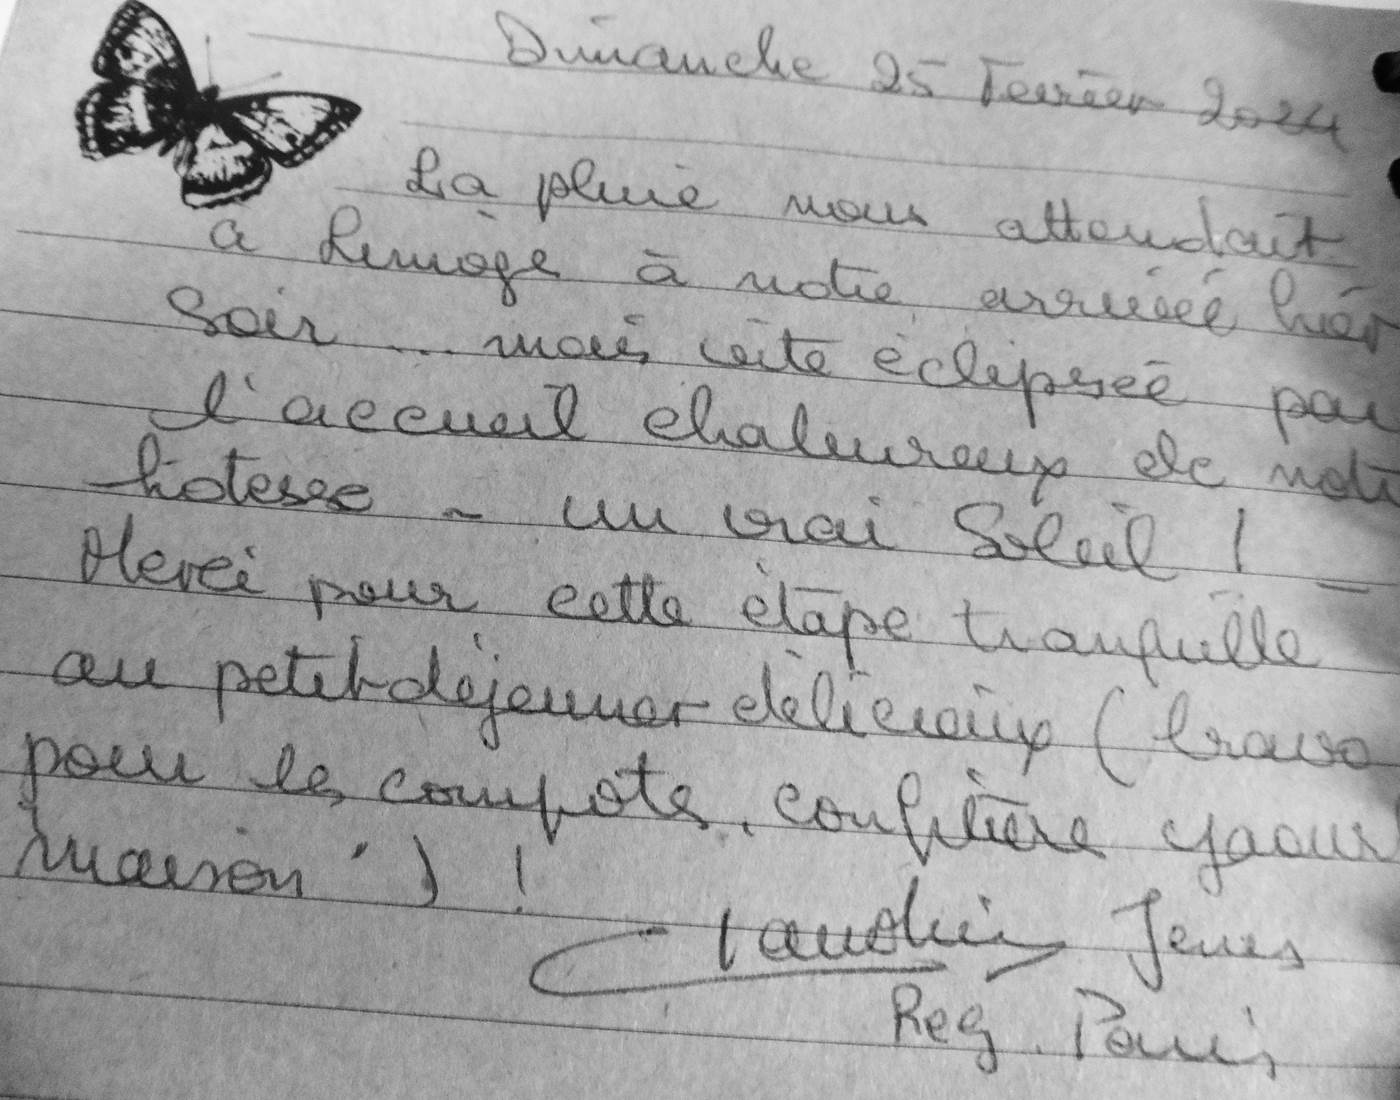 Dimanche 25 Février 2024
La pluie nous attendait
à Limoge à notre arrivée hier
Soir ... mais vite éclipsée par
l'accueil chaleureux de notre
hôtesse - un vrai Soleil ! -
Merci pour cette étape tranquille
au petit-déjeuner délicieux (bravo
pour les compote, confiture yaour
maison ') !
Claudine
Reg. Paris